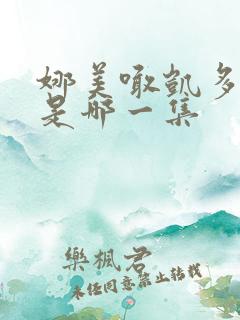 娜美噉凱多
是哪一集
樂楓君
未任同意禁止转载